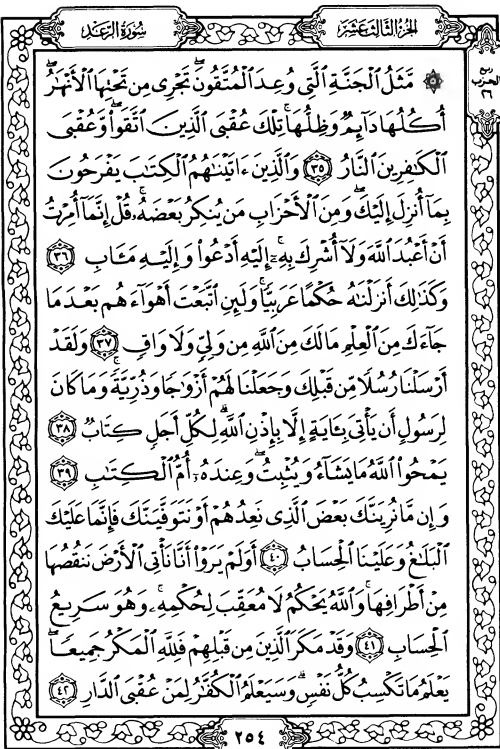 الجزء الثالث عشر
سورة الرعد
۞ مَّثَلُ ٱلْجَنَّةِ ٱلَّتِى وُعِدَ ٱلْمُتَّقُونَ ۖ تَجْرِى مِن تَحْتِهَا ٱلْأَنْهَٰرُ ۖ
أُكُلُهَا دَآئِمٌ وَظِلُّهَا ۚ تِلْكَ عُقْبَى ٱلَّذِينَ ٱتَّقَوا۟ ۖ وَّعُقْبَى
ٱلْكَٰفِرِينَ ٱلنَّارُ ٣٥ وَٱلَّذِينَ ءَاتَيْنَٰهُمُ ٱلْكِتَٰبَ يَفْرَحُونَ
بِمَآ أُنزِلَ إِلَيْكَ ۖ وَمِنَ ٱلْأَحْزَابِ مَن يُنكِرُ بَعْضَهُۥ ۚ قُلْ إِنَّمَآ أُمِرْتُ
أَنْ أَعْبُدَ ٱللَّهَ وَلَآ أُشْرِكَ بِهِۦٓ ۚ إِلَيْهِ أَدْعُوا۟ وَإِلَيْهِ مَـَٔابِ ٣٦
وَكَذَٰلِكَ أَنزَلْنَٰهُ حُكْمًا عَرَبِيًّا ۚ وَلَئِنِ ٱتَّبَعْتَ أَهْوَآءَهُم بَعْدَمَا
جَآءَكَ مِنَ ٱلْعِلْمِ مَا لَكَ مِنَ ٱللَّهِ مِن وَلِىٍّ وَلَا وَاقٍ ٣٧ وَلَقَدْ
أَرْسَلْنَا رُسُلًا مِّن قَبْلِكَ وَجَعَلْنَا لَهُمْ أَزْوَٰجًا وَذُرِّيَّةً ۚ وَمَا كَانَ
لِرَسُولٍ أَن يَأْتِىَ بِـَٔايَةٍ إِلَّا بِإِذْنِ ٱللَّهِ ۗ لِكُلِّ أَجَلٍ كِتَابٌ ٣٨
يَمْحُوا۟ ٱللَّهُ مَا يَشَآءُ وَيُثْبِتُ ۖ وَعِندَهُۥٓ أُمُّ ٱلْكِتَٰبِ ٣٩
وَإِن مَّا نُرِيَنَّكَ بَعْضَ ٱلَّذِى نَعِدُهُمْ أَوْ نَتَوَفَّيَنَّكَ فَإِنَّمَا عَلَيْكَ
ٱلْبَلَٰغُ وَعَلَيْنَا ٱلْحِسَابُ ٤٠ أَوَلَمْ يَرَوْا۟ أَنَّا نَأْتِى ٱلْأَرْضَ نَنقُصُهَا
مِنْ أَطْرَافِهَا ۚ وَٱللَّهُ يَحْكُمُ لَا مُعَقِّبَ لِحُكْمِهِۦ ۚ وَهُوَ سَرِيعُ
ٱلْحِسَابِ ٤١ وَقَدْ مَكَرَ ٱلَّذِينَ مِن قَبْلِهِمْ فَلِلَّهِ ٱلْمَكْرُ جَمِيعًا ۖ
يَعْلَمُ مَا تَكْسِبُ كُلُّ نَفْسٍ ۗ وَسَيَعْلَمُ ٱلْكُفَّٰرُ لِمَنْ عُقْبَى ٱلدَّارِ ٤٢
٢٥٤